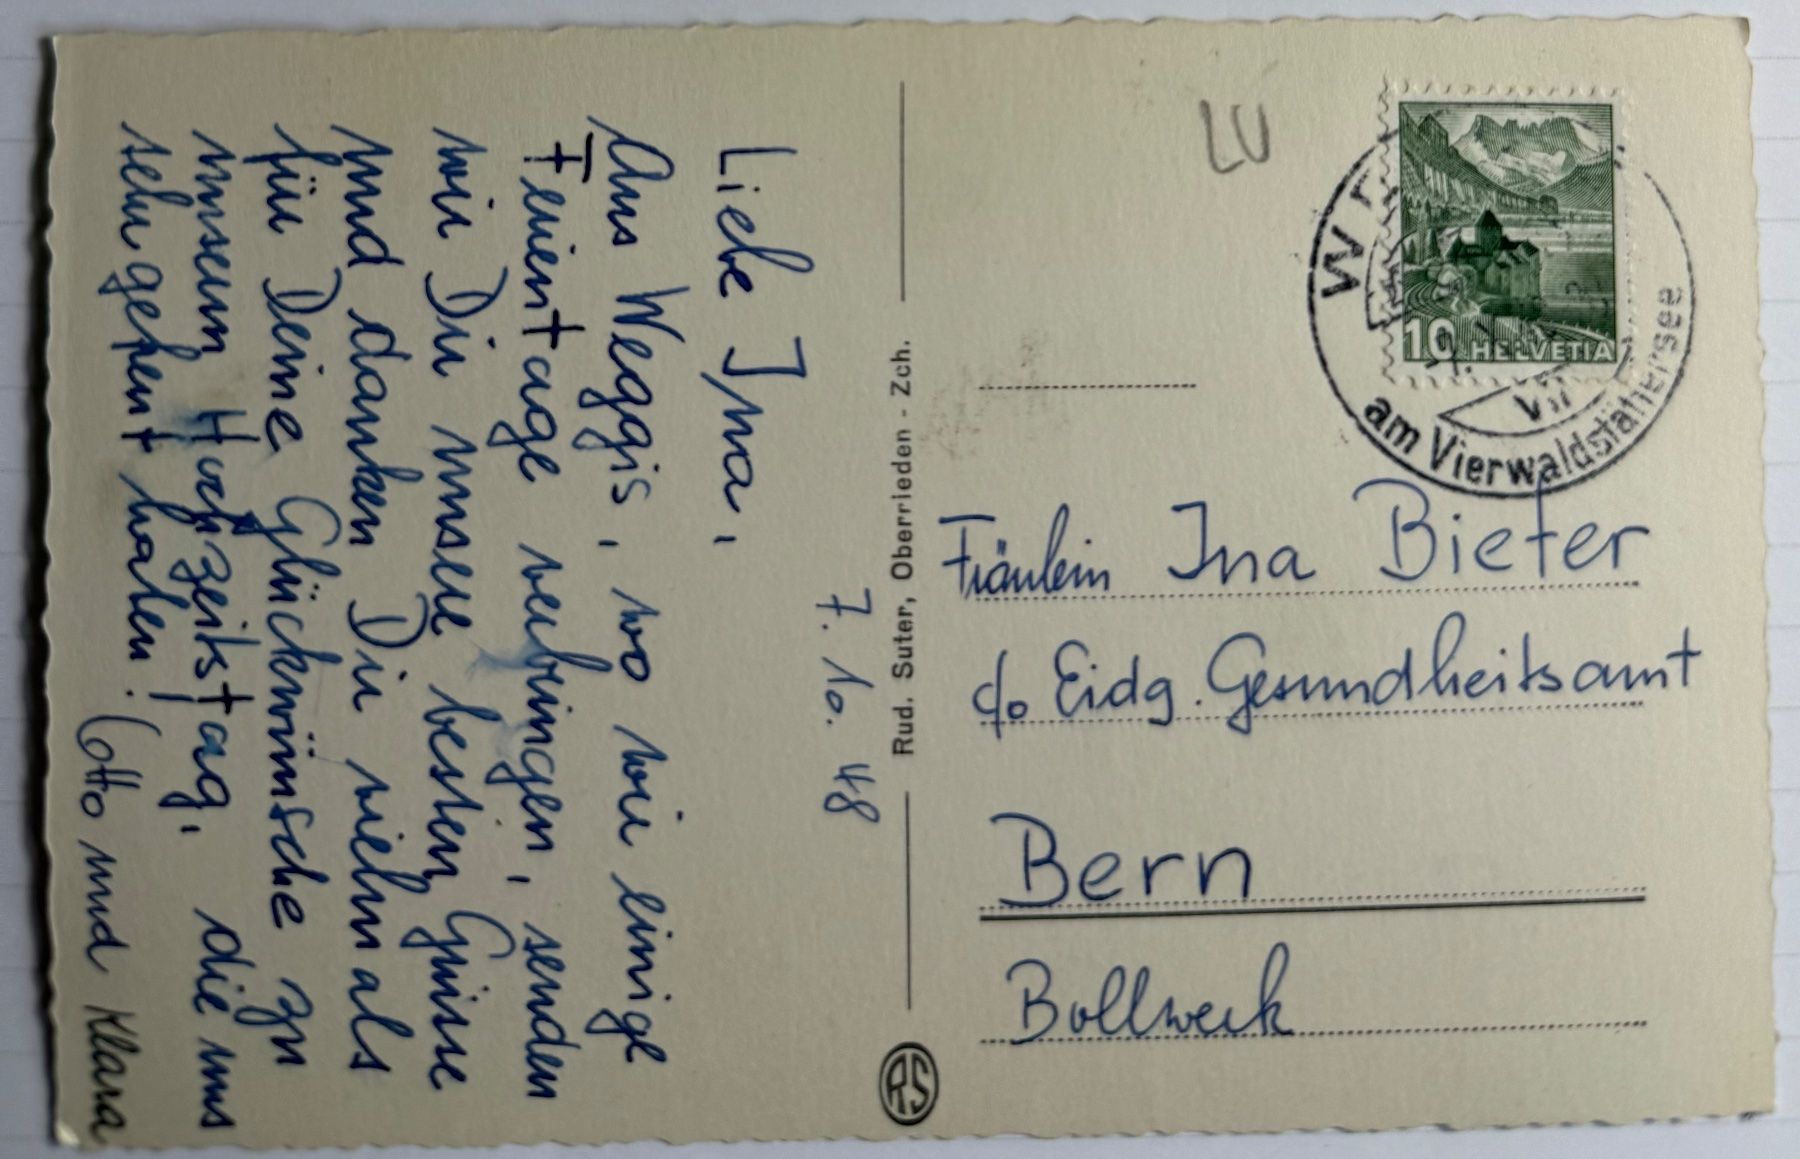 7. 10. 48
Liebe Ina,
Aus Weggis, wo wir einige
Ferientage verbringen, senden
wir Dir unsere besten Grüsse
und danken Dir vielmals
für Deine Glückwünsche zu
unserm Hochzeitstag, die uns
sehr gefreut haben! Otto und Klara
Rud. Suter, Oberrieden - Zch.
RS
LU
10 HELVETIA
am Vierwaldstättersee
Fräulein Ina Bieter
c/o Eidg. Gesundheitsamt
Bern
Bollwerk